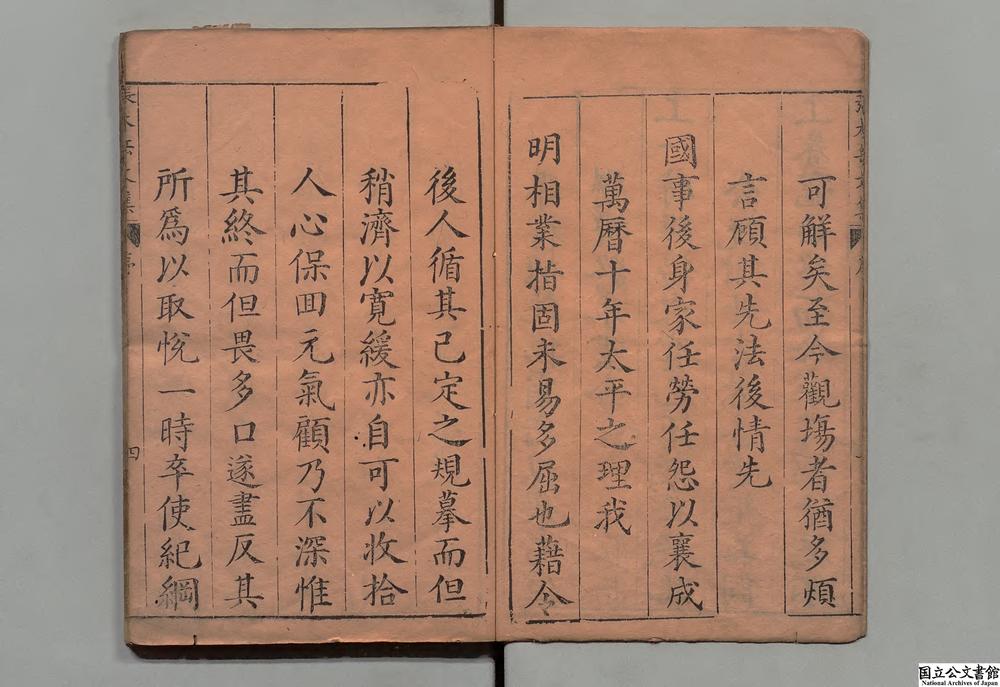 可解矣至今觀場者猶多煩
言顧其先法後情先
國事後身家任勞任怨以襄成
萬曆十年太平之理我
明相業指固未易多屈也藉令
後人循其已定之規摹而但
稍濟以寬緩亦自可以收拾
人心保囬元氣顧乃不深惟
其終而但畏多口遂盡反其
所爲以取悅一時卒使紀綱
四
国立公文書館
National Archives of Japan